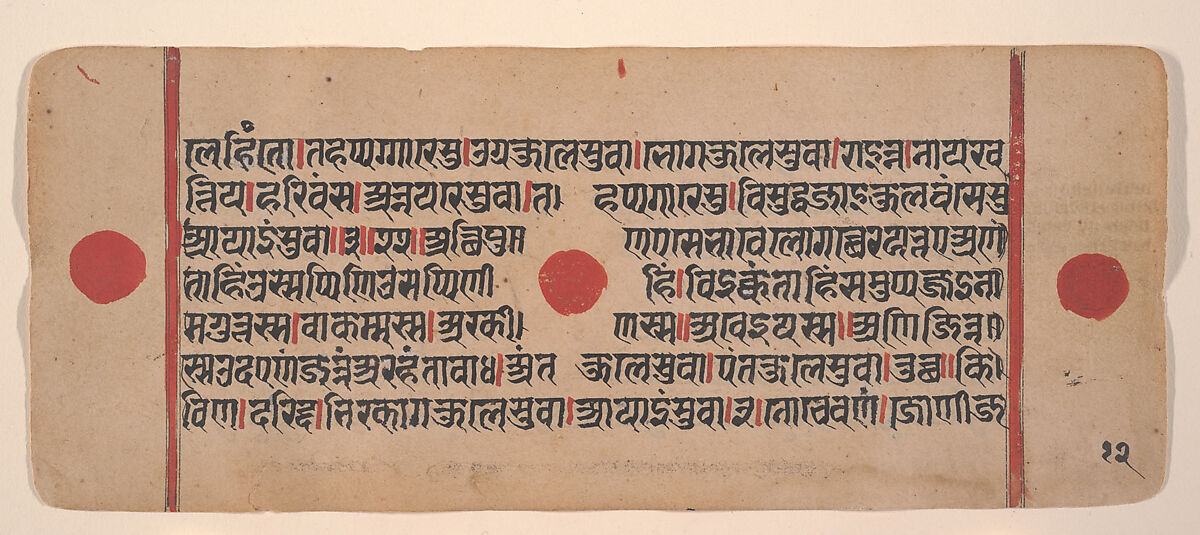 लेहिंतो।तहप्पगारेसु।उग्गकुलेसुवा।भोगकुलेसुवा।राइन्न।नायख
त्तिय।हरिवंस।अन्नयरेसुवा।त। हप्पगारेसु।विसुद्धजाइकुलवंसेसु
आयाइंसुवा॥३॥२२॥अत्थिपुण
ताहिंउस्सप्पिणिउसप्पिणी हिं।विइक्कंताहिंसमुप्पज्जइना
मगुत्तस्स।वाकम्मस्स।अरकी। णस्स॥अवेइयस्स॥अणिज्जिन्न
स्सउदएणंजन्नंअरहंतावाध।अंत कुलेसुवा।पंतकुलेसुवा।तुच्छ॥कि।
विण।दरिद्द।भिरकागकुलेसुवा।आयाइंसुवा।३।नोचेवणं।जोणीज
१२